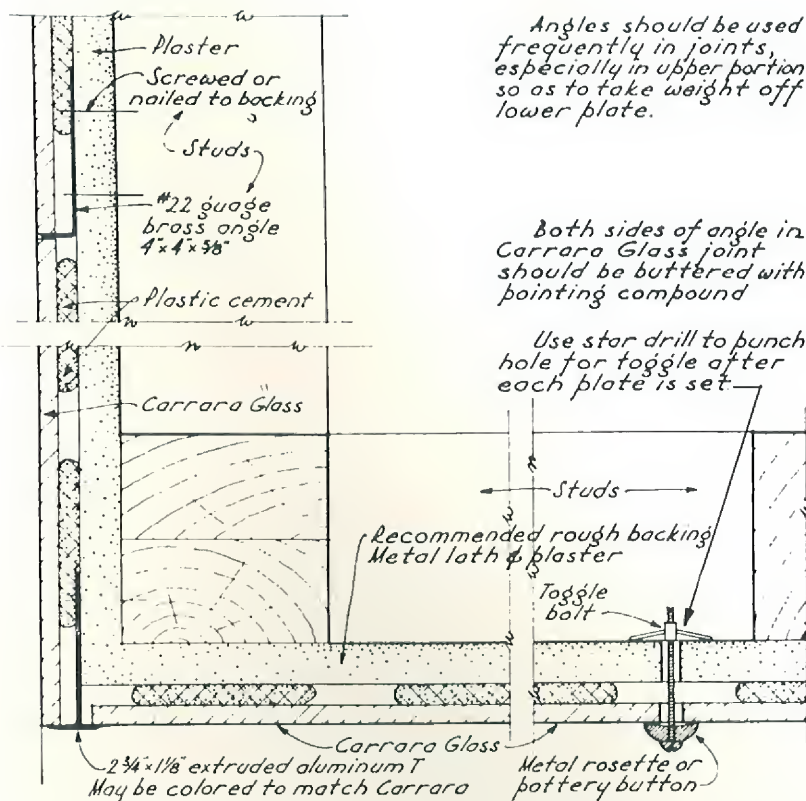 Plaster
Screwed or
nailed to backing
Studs
#22 guage
brass angle
4"x 4"x 5/8"
Plastic cement
Carrara Glass
Angles should be used
frequently in joints,
especially in upper portion
so as to take weight off
lower plate.
Both sides of angle in
Carrara Glass joint
should be buttered with
pointing compound
Use star drill to punch
hole for toggle after
each plate is set
Studs
Recommended rough backing
Metal lath & plaster
Toggle
bolt
Carrara Glass
2 3/4"x 1 1/8" extruded aluminum T
May be colored to match Carrara
Metal rosette or
pottery button